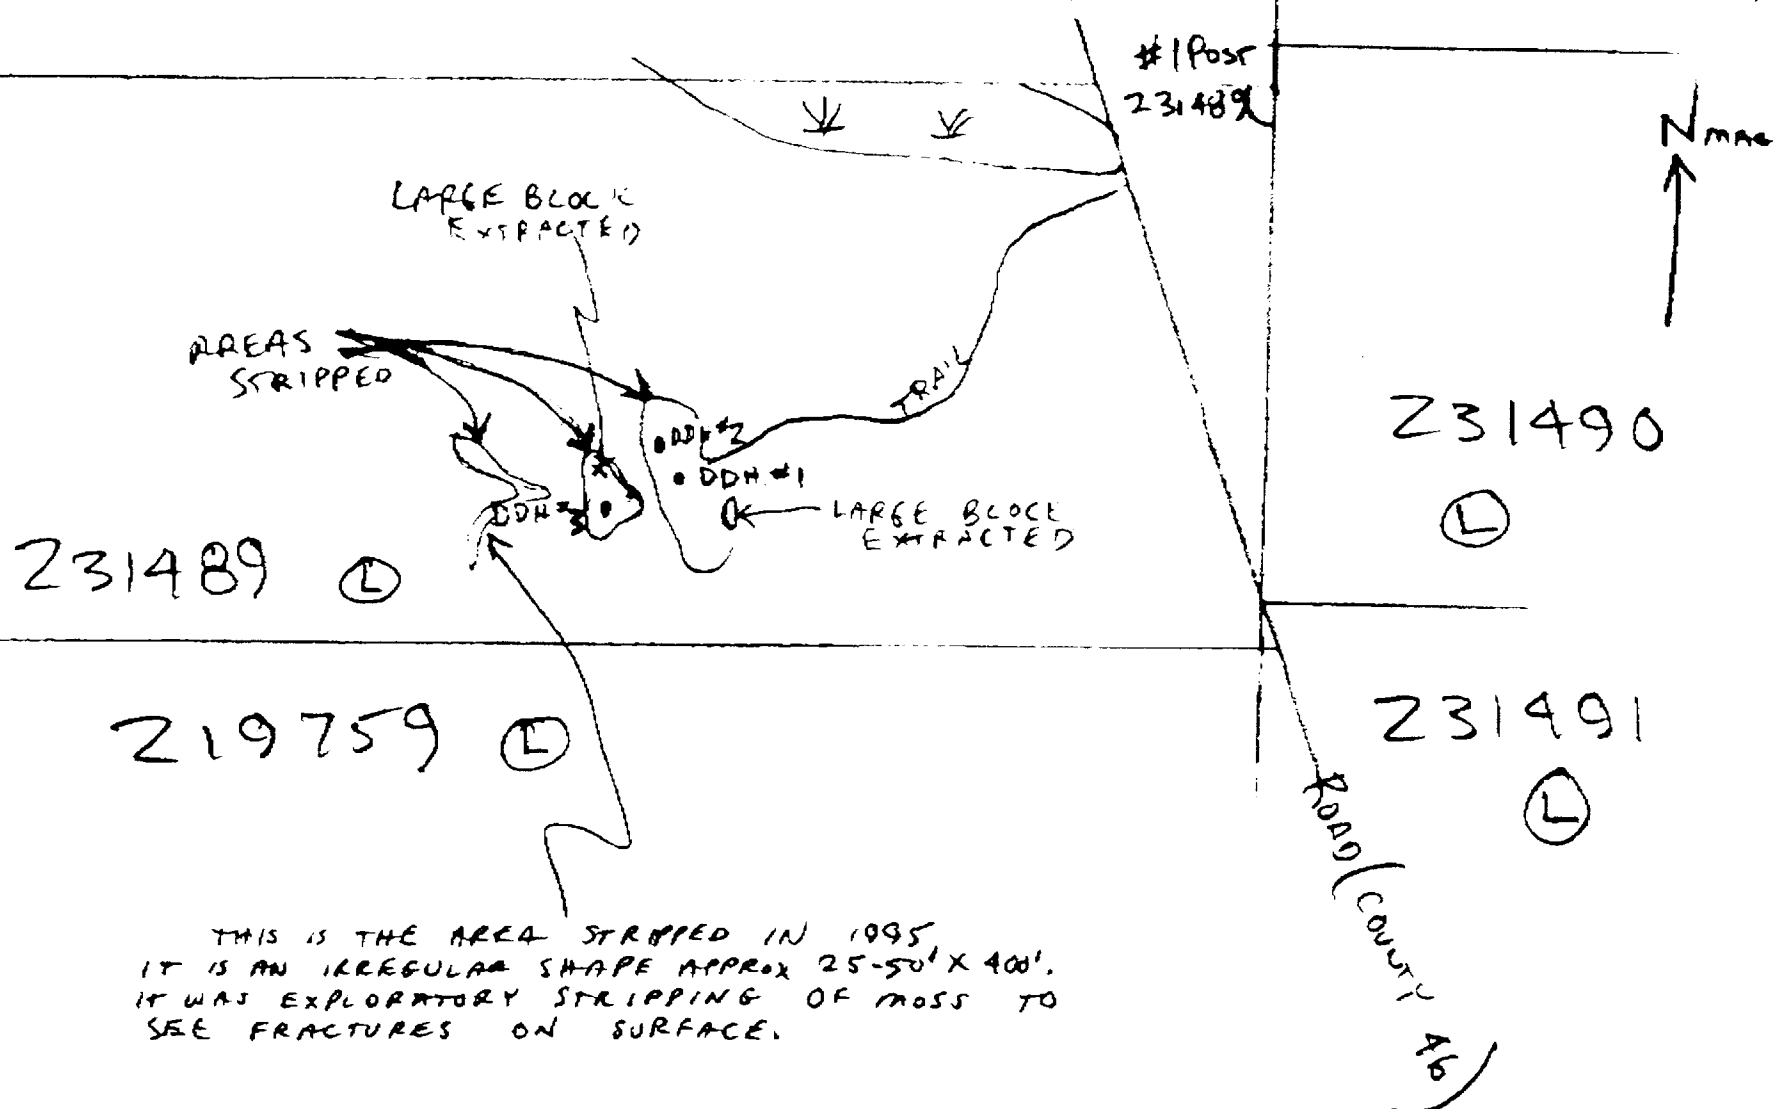 #1 Post
231489
N MAG
LARGE BLOCK
EXTRACTED
AREAS
STRIPPED
TRAIL
231490
L
DDH #2
DDH #1
DDH #3
LARGE BLOCK
EXTRACTED
231489 L
219759 L
231491
L
ROAD (COUNTY 46)
THIS IS THE AREA STRIPPED IN 1995
IT IS AN IRREGULAR SHAPE APPROX 25-50' X 400'.
IT WAS EXPLORATORY STRIPPING OF MOSS TO
SEE FRACTURES ON SURFACE.